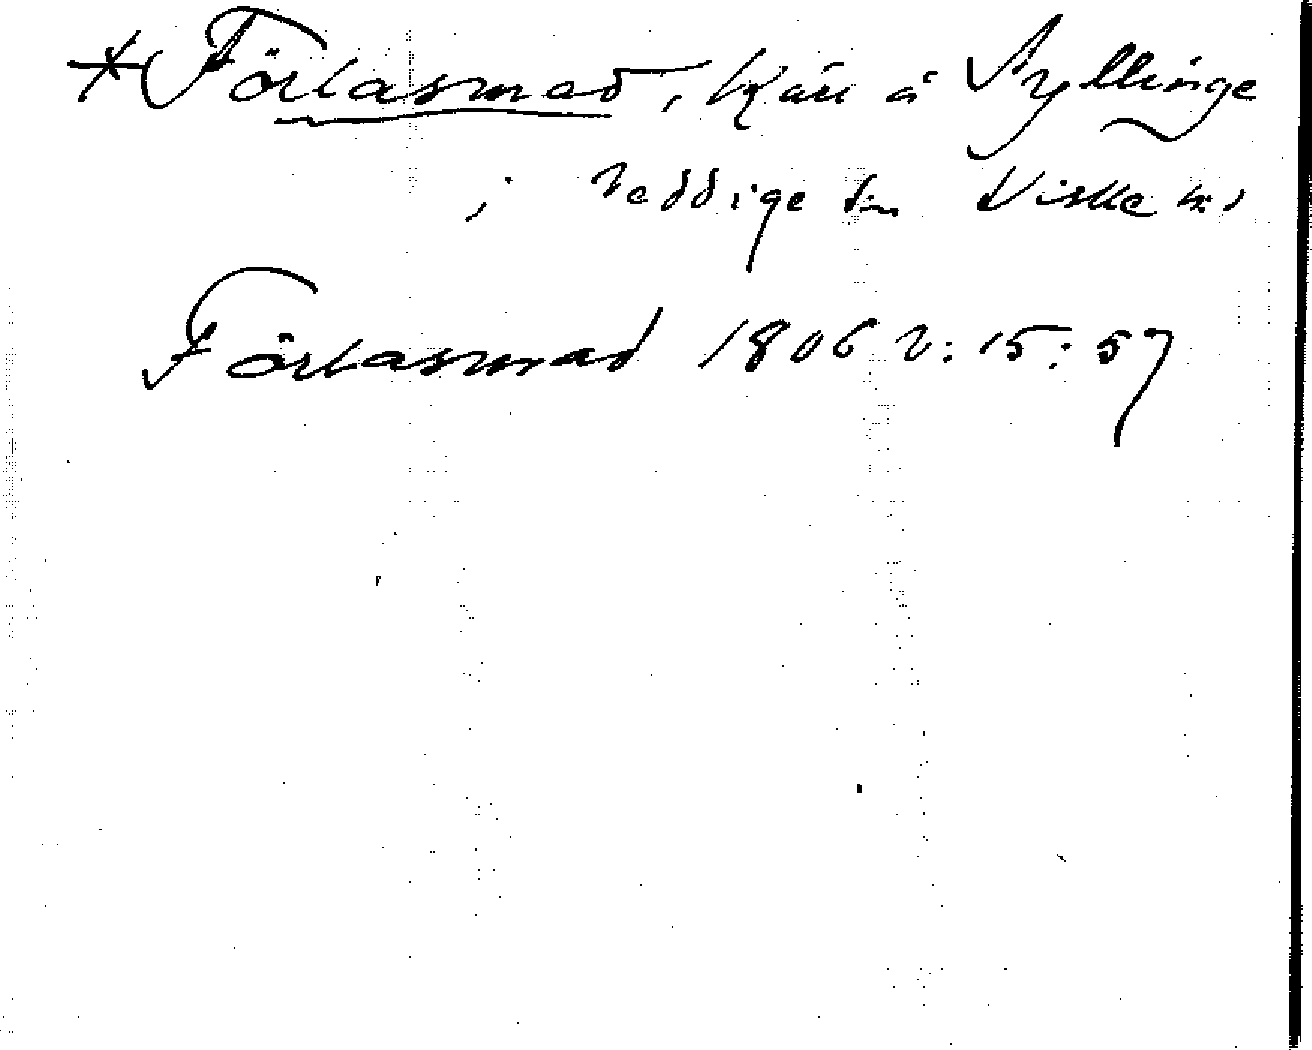 *Förlasmad, Kärr å Syllinge
i Veddige sn Viske hd
Förlasmad 1806 V:15:57